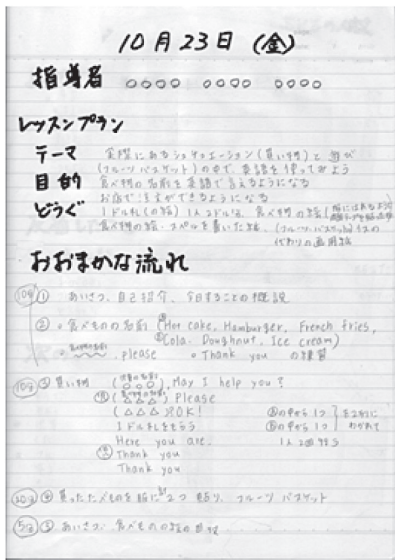 10月23日(金)
指導者 ○○○○ ○○○○ ○○○○
レッスンプラン
テーマ 実際にあるシチュエーション(買い物)と遊び
(フルーツバスケット)の中で、英語を使ってみよう
目的 食べ物の名前を英語で言えるようになる
お店で注文ができるようになる
どうぐ 1ドル札(の絵) 1人2ドル
食べ物の絵・スペルを書いた
代わりの画用紙
おおまかな流れ
10分 ① あいさつ、自己紹介、今日することの概説
② ○食べものの名前 (Hot cake, Hamburger, French fries,
Cola, Doughnut, Ice cream)
please ○ Thank you の練習
10分 ③ 買い物 (○○○), May I help you?
(△△△) Please
(△△△)? OK!
1ドル札をもらう
Here you are.
Thank you
Thank you
の中から1つ
の中から1つ
を2分に
わかれて
1人2回
20分 ④ 買ったたべものを 2つ 貼り、フルーツバスケット
5分 ⑤ あいさつ、食べものの絵の